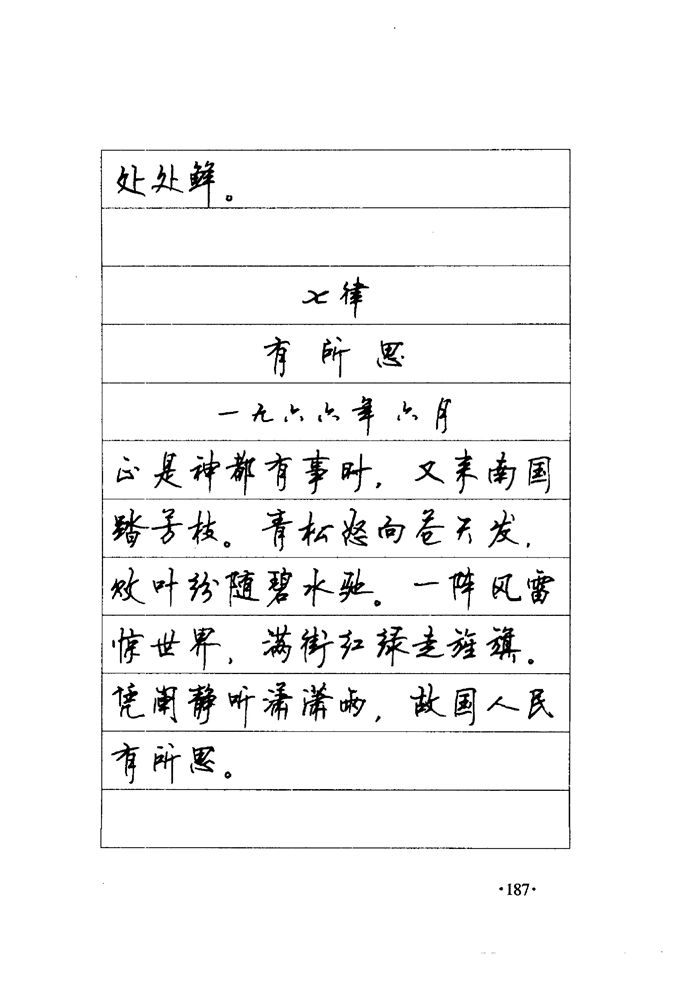 处处鲜。
七律
有所思
一九六六年六月
正是神都有事时，又来南国
踏芳枝。青松怒向苍天发，
败叶纷随碧水驰。一阵风雷
惊世界，满街红绿走旌旗。
凭阑静听潇潇雨，故国人民
有所思。
·187·